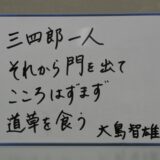 三四郎一人
それから門を出て
こころはずまず
道草を食う 大島智雄